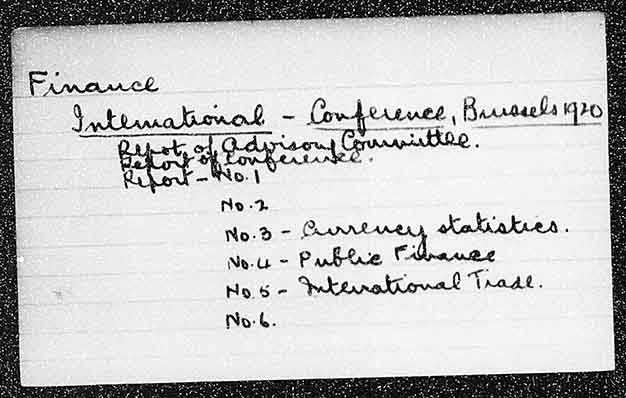 Finance
International - Conference, Brussels 1920
Report of Advisory Committee.
Report of Conference.
Report - No. 1
No. 2
No. 3 - Currency statistics.
No. 4 - Public Finance
No. 5 - International Trade.
No. 6.